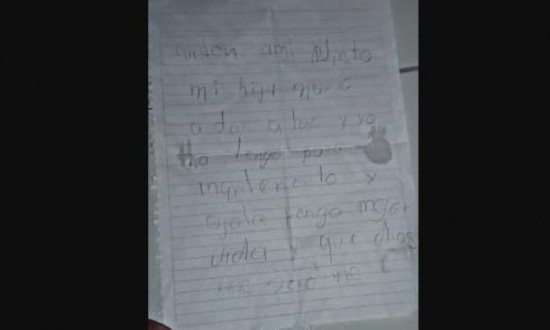 cuiden ami nieto
mi hija
a dar a luz y yo
no tengo para
mantenerlo y
ojala tenga mejor
vida y que dios
me